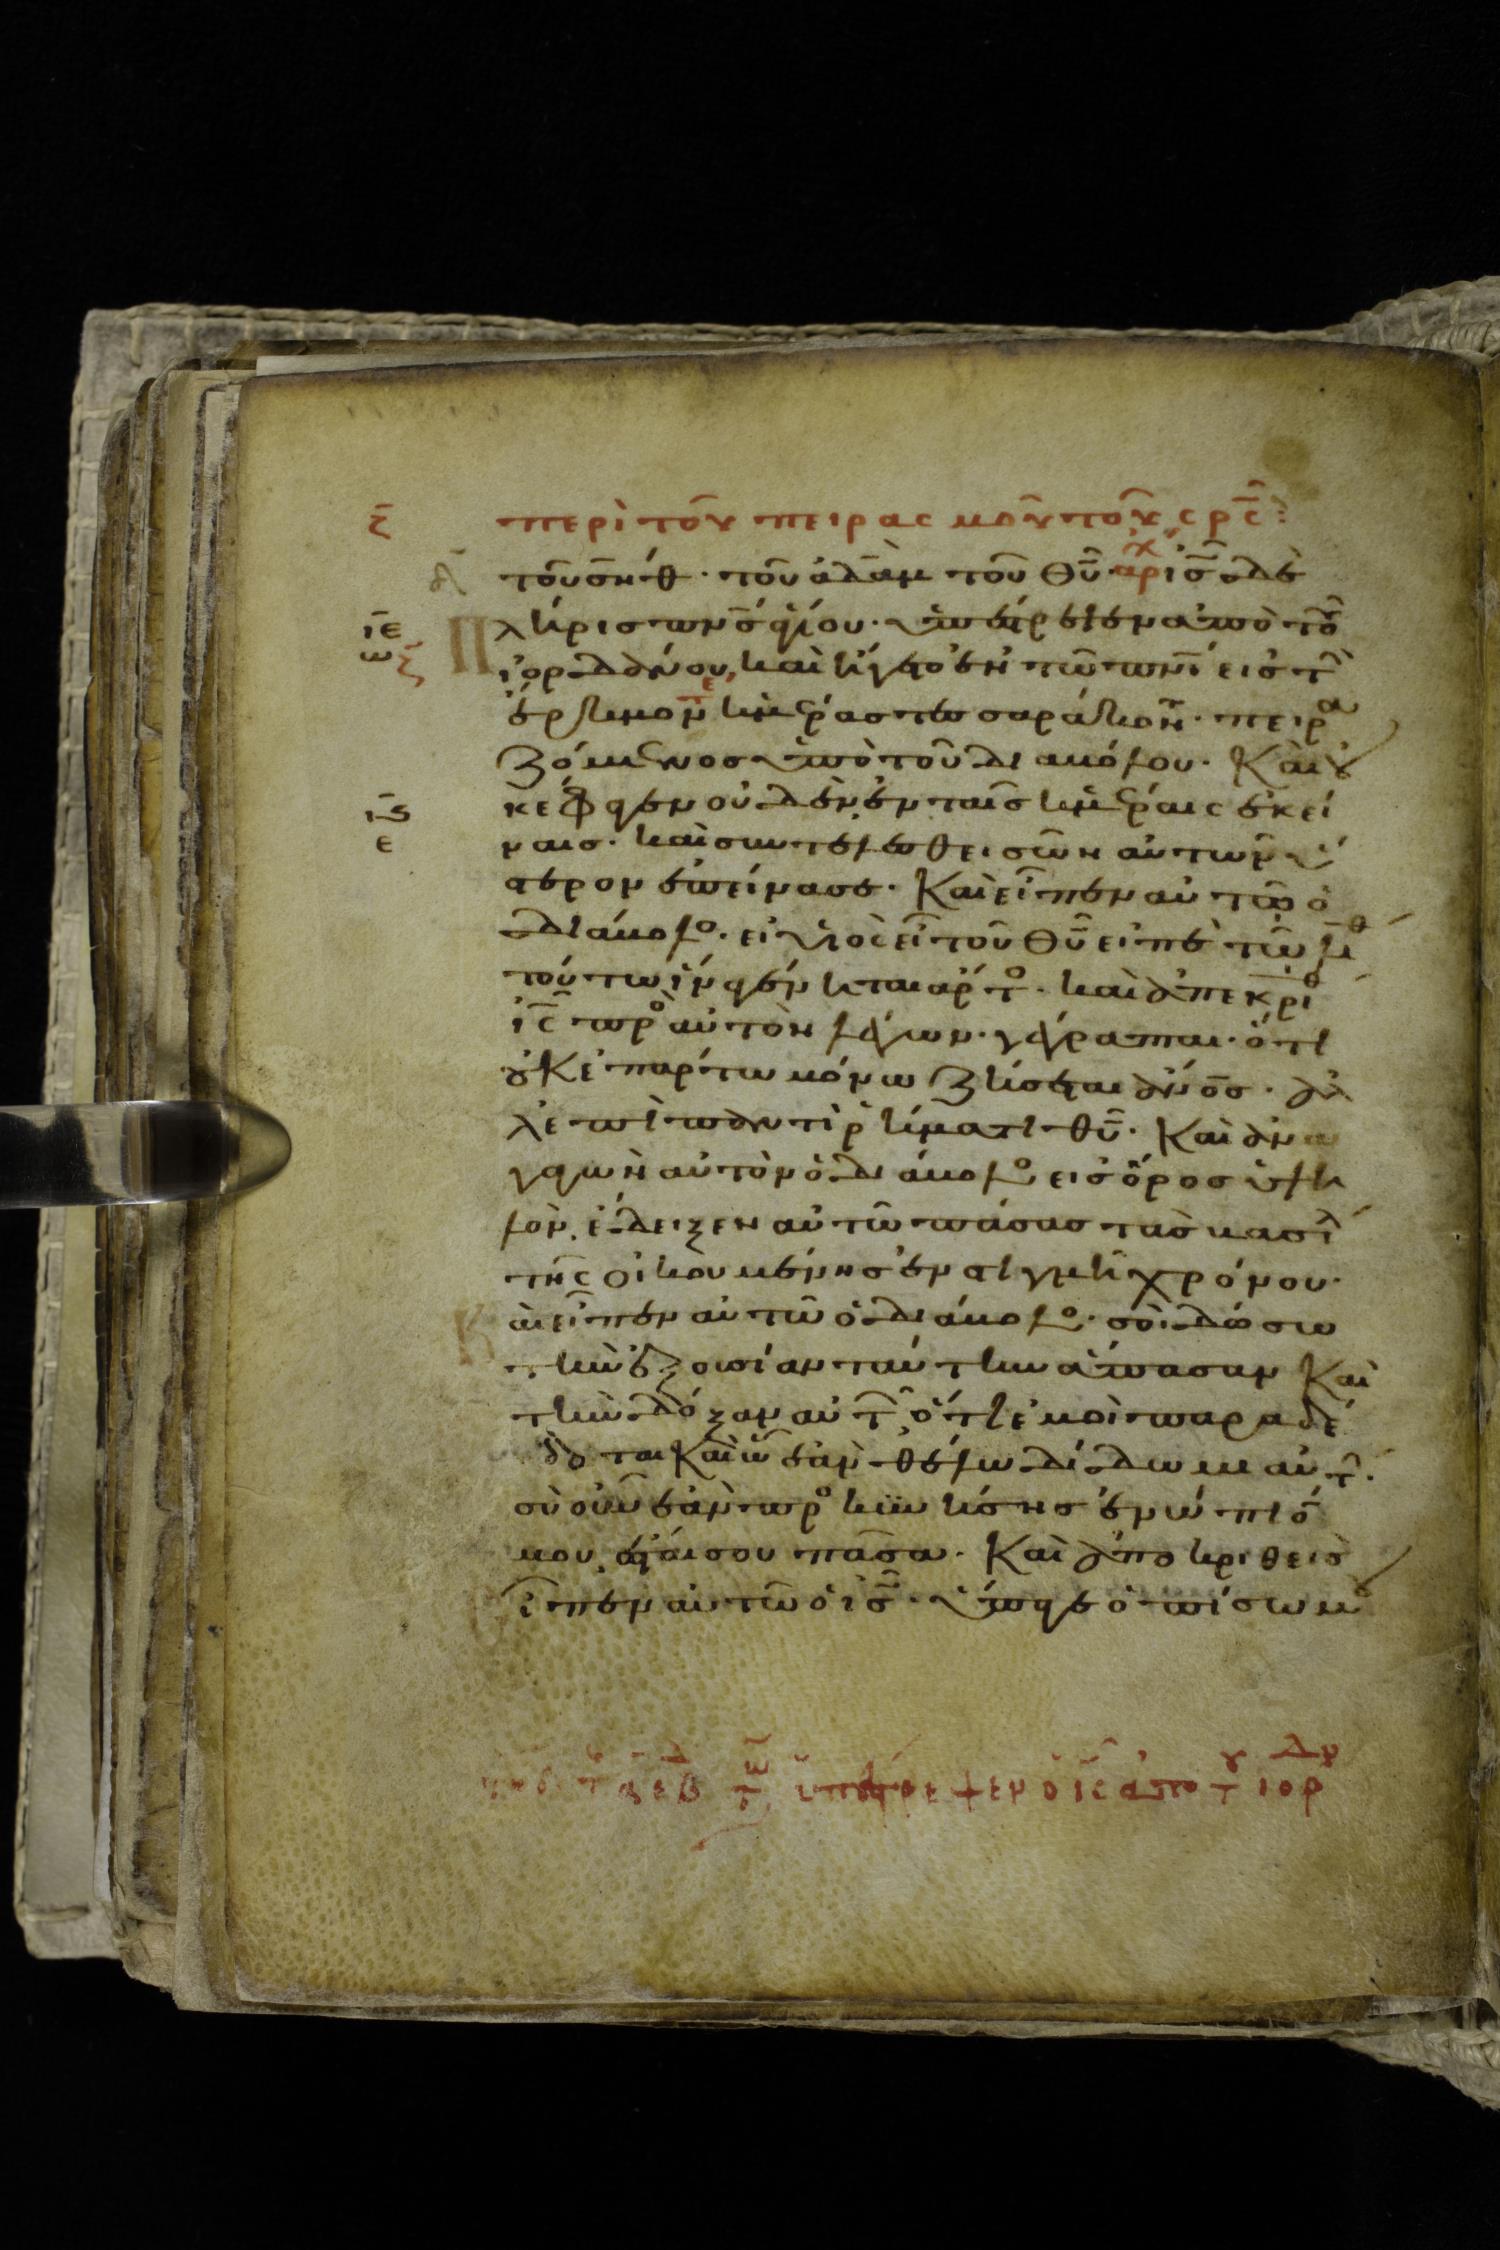 ϛ̄ περὶ τοῦ πειρασμοῦ τοῦ σρ̅ς̅:
τοῦ σὴθ· τοῦ ἀδὰμ τοῦ θυ̅· ἀρχ ις̅ δὲ
ιε̅ πλήρης πν̅ς ἁγίου· ὑπέστρεψεν ἀπὸ τοῦ
ω ζ̅ ἰορδάνου, καὶ ἤγετο ἐν τῶ πνι̅ εἰς τὴ
ἔρημον τε ἡμέρας τεσσαράκοντ· πειρα
ζόμενος ὑπὸ τοῦ διαβόλου· Καὶ οὐ
ις̅ κ ἔφαγεν οὐδὲν ἐν ταῖς ἡμέραις ἐκεί
ε ναις· καὶ συντελεσθεισῶν αὐτῶν ὕ
στερον ἐπείνασε· Καὶ εἶπεν αὐτῶ ὁ
διάβολο· εἰ υἱὸς εἶ τοῦ θυ̅ εἰπὲ τῶ λιθ
τούτω ἵνα γένηται ἄρτο· καὶ ἀπεκρίθ
ις̅ πρὸ αὐτὸν λέγων· γέγραπται· ὅτι
οὐκ ἐπ' ἄρτω μόνω ζήσεται ἄνο̅ς· ἀλ
λ' ἐπὶ παντὶ ῥήματι θυ̅· Καὶ ἀνα
γαγὼν αὐτὸν ὁ διάβολο εἰς ὄρος ὑψη
λὸν, ἔδειξεν αὐτῶ πάσας τὰς βασιλ
τῆς οἰκουμένης ἐν στιγμῆ χρόνου·
Καὶ εἶπεν αὐτῶ ὁ διάβολο· σοὶ δώσω
τὴν ἐξουσίαν ταύτην ἅπασαν Καὶ
τὴν δόξαν αὐτ, ὅτι ἐμοὶ παραδέ
δοται Καὶ ὧ ἐὰν θέλω δίδωμι αὐτ·
σὺ οὖν ἐὰν προσκυνήσης ἐνώπιό
μου, ἔσται σου πᾶσα· Καὶ ἀποκριθεὶς
εἶπεν αὐτῶ ὁ ις̅· ὕπαγε ὀπίσω μου
ὑπέστρεψεν ὁ ις̅ ἀπὸ του ιορδν